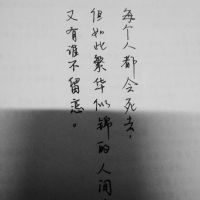 每个人都会死去，
但如此繁华似锦的人间
又有谁不留恋。